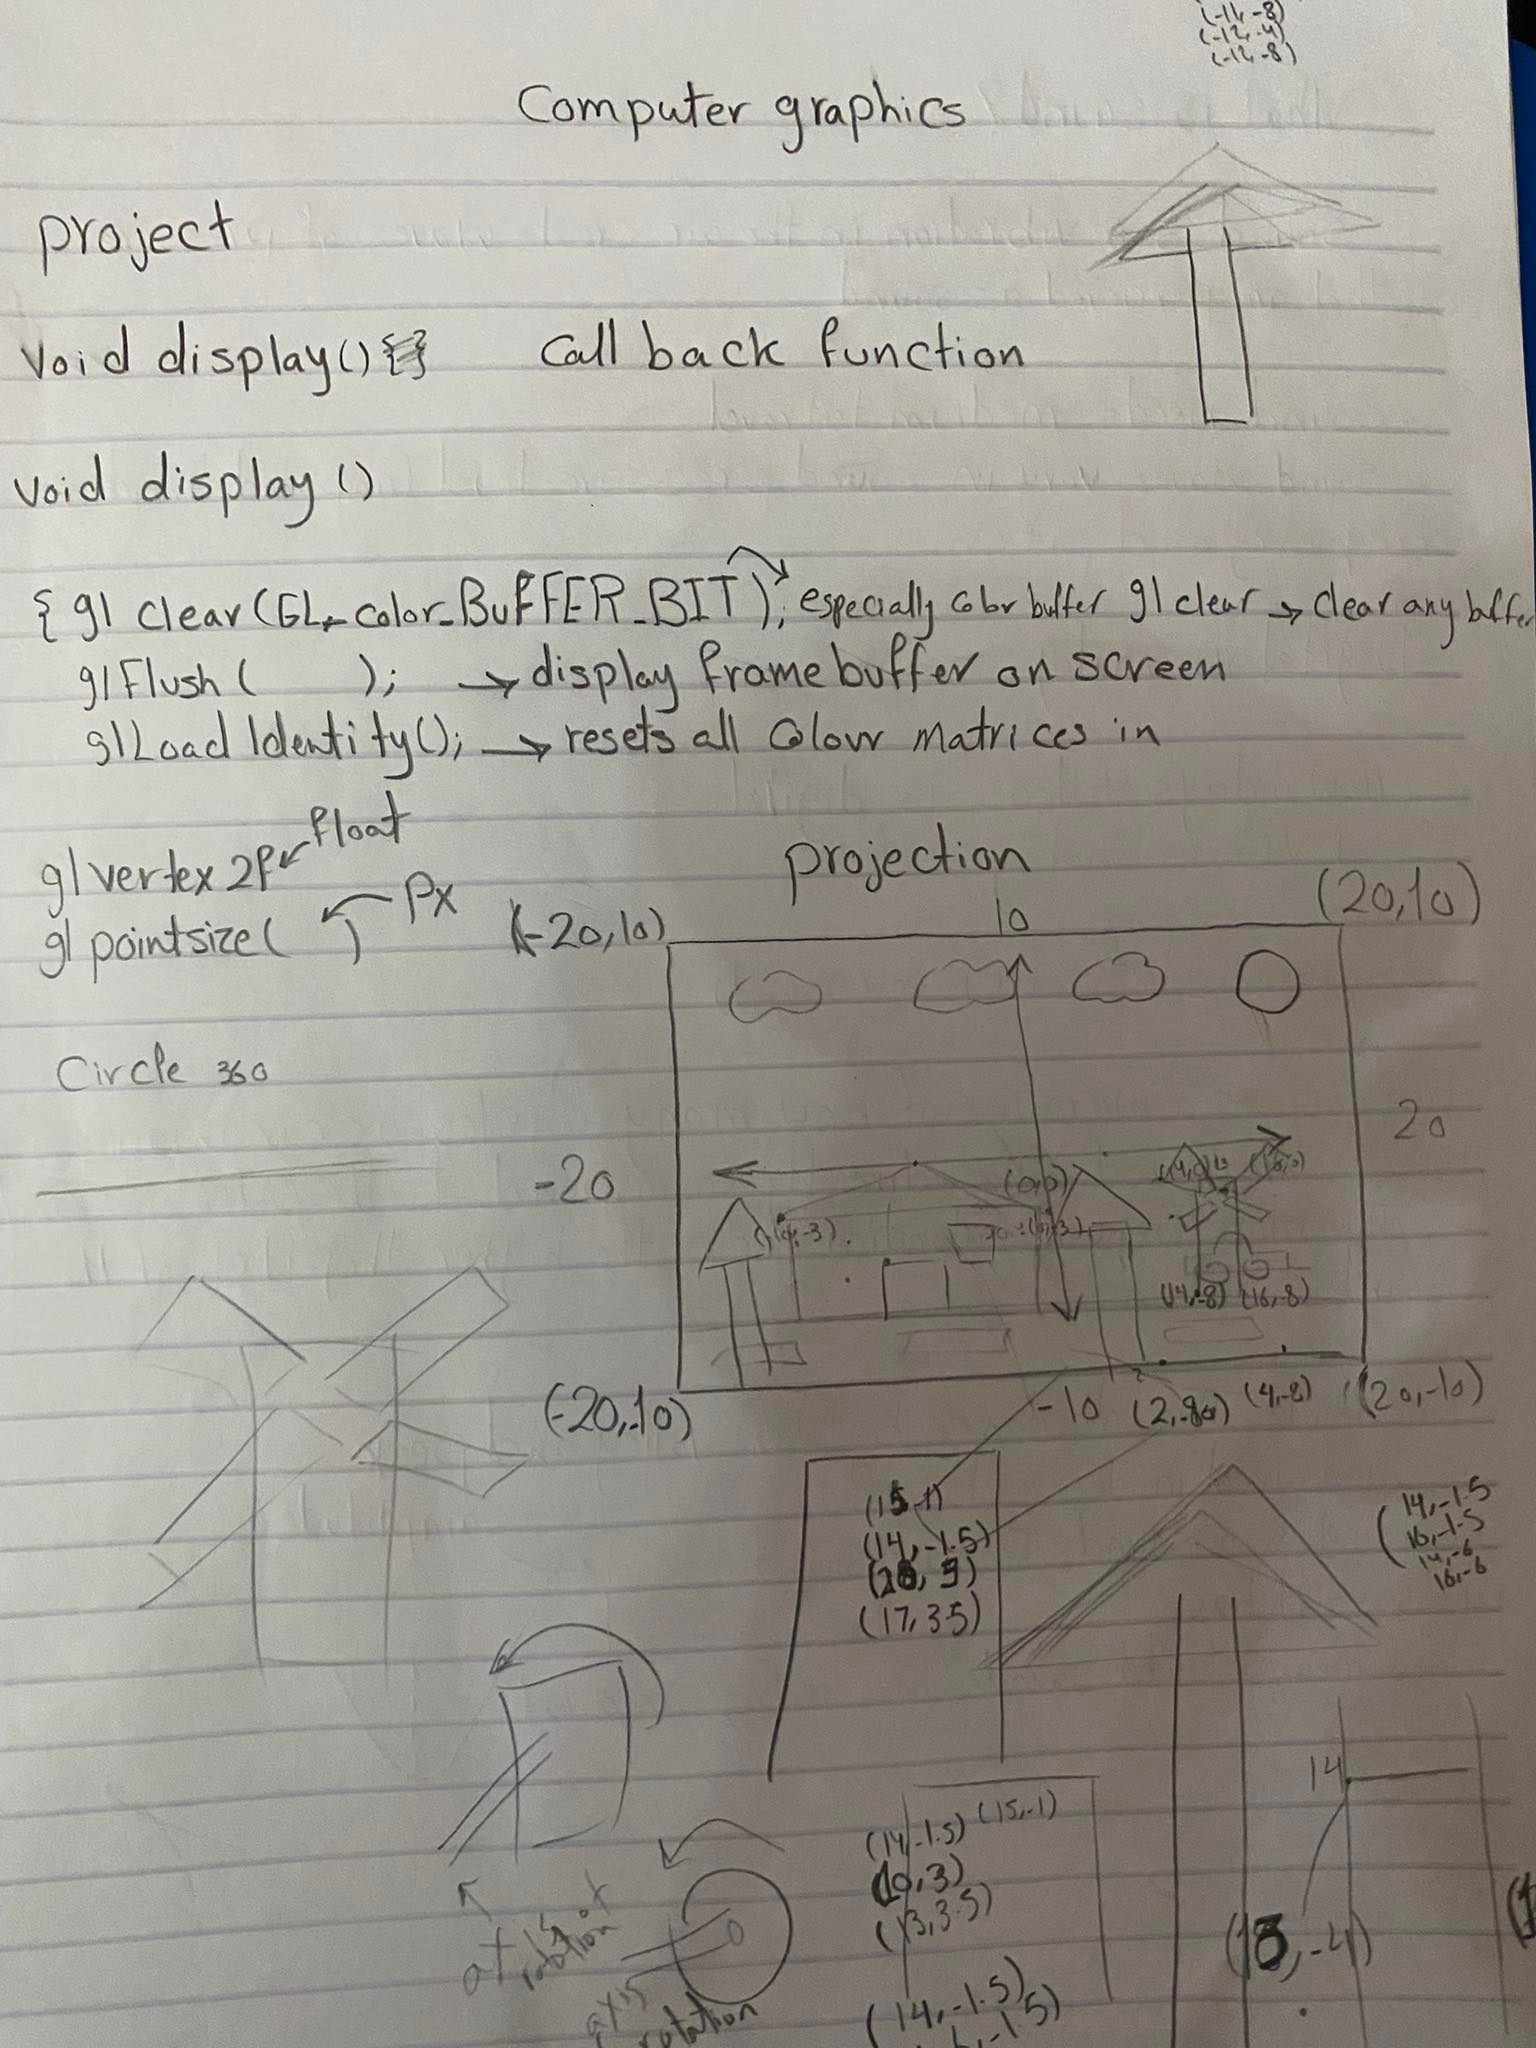 (-11, -8)
(-12, -4)
(-12, -8)
Computer graphics
project
void display() {} Call back function
void display ()
{ gl clear (GL_color_BUFFER_BIT); especially color buffer gl clear → clear any buffer
glFlush ( ); → display frame buffer on screen
glLoad Identity(); → resets all Colour matrices in
gl vertex 2f float
gl pointsize ( ) Px
projection
(-20,10) 10 (20,10)
Circle 360
-20 20
(0,0)
(14,-8) (16,-8)
(-20,-10) -10 (4,-8) (20,-10)
(14, -1.5)
(17, 3.5)
14, -1.5
16, -1.5
14, -6
16, -6
14
(14, -1.5) (15, -1)
(10, 3)
(13, 3.5)
axis of
rotation
axis
rotation
(13, -4)
(14, -1.5)